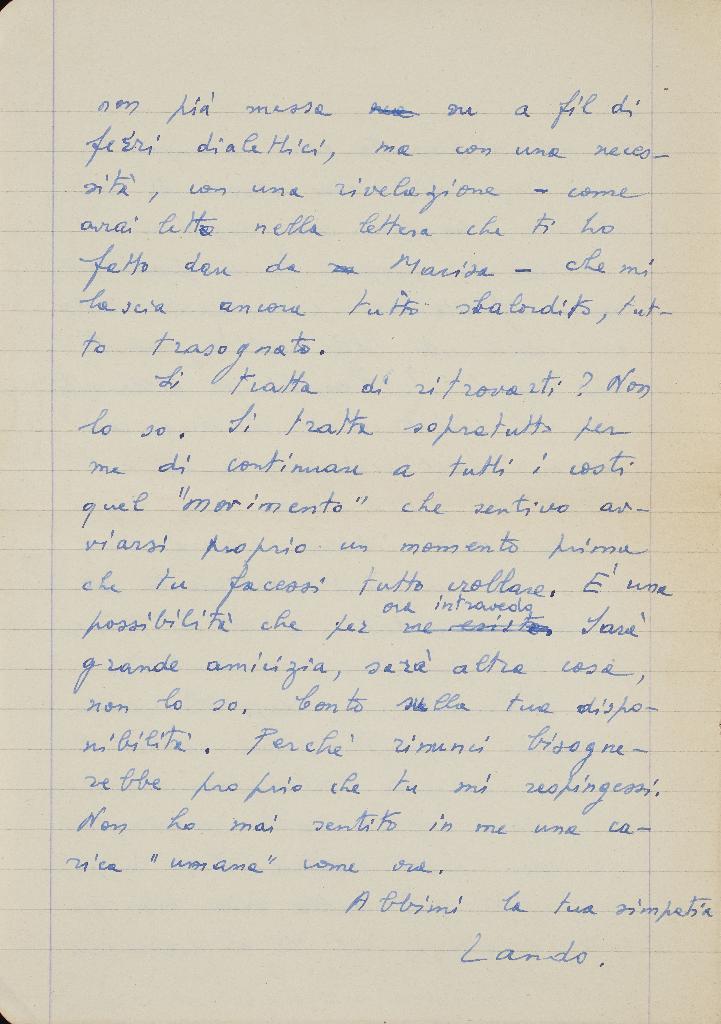 non più messa su a fil di
ferri dialettici, ma con una neces-
sità, con una rivelazione - come
avrai letto nella lettera che ti ho
fatto dare da Marisa - che mi
lascia ancora tutto sbalordito, tut-
to trasognato.
Si tratta di ritrovarti? Non
lo so. Si tratta sopratutto per
me di continuare a tutti i costi
quel "movimento" che sentivo av-
viarsi proprio un momento prima
che tu facessi tutto crollare. E' una
possibilità che per ora intravedo. Sarà
grande amicizia, sarà altra cosa,
non lo so. Conto sulla tua dispo-
nibilità. Perchè rinunci bisogne-
rebbe proprio che tu mi respingessi.
Non ho mai sentito in me una ca-
rica "umana" come ora.
Abbimi la tua simpatia
Lando.